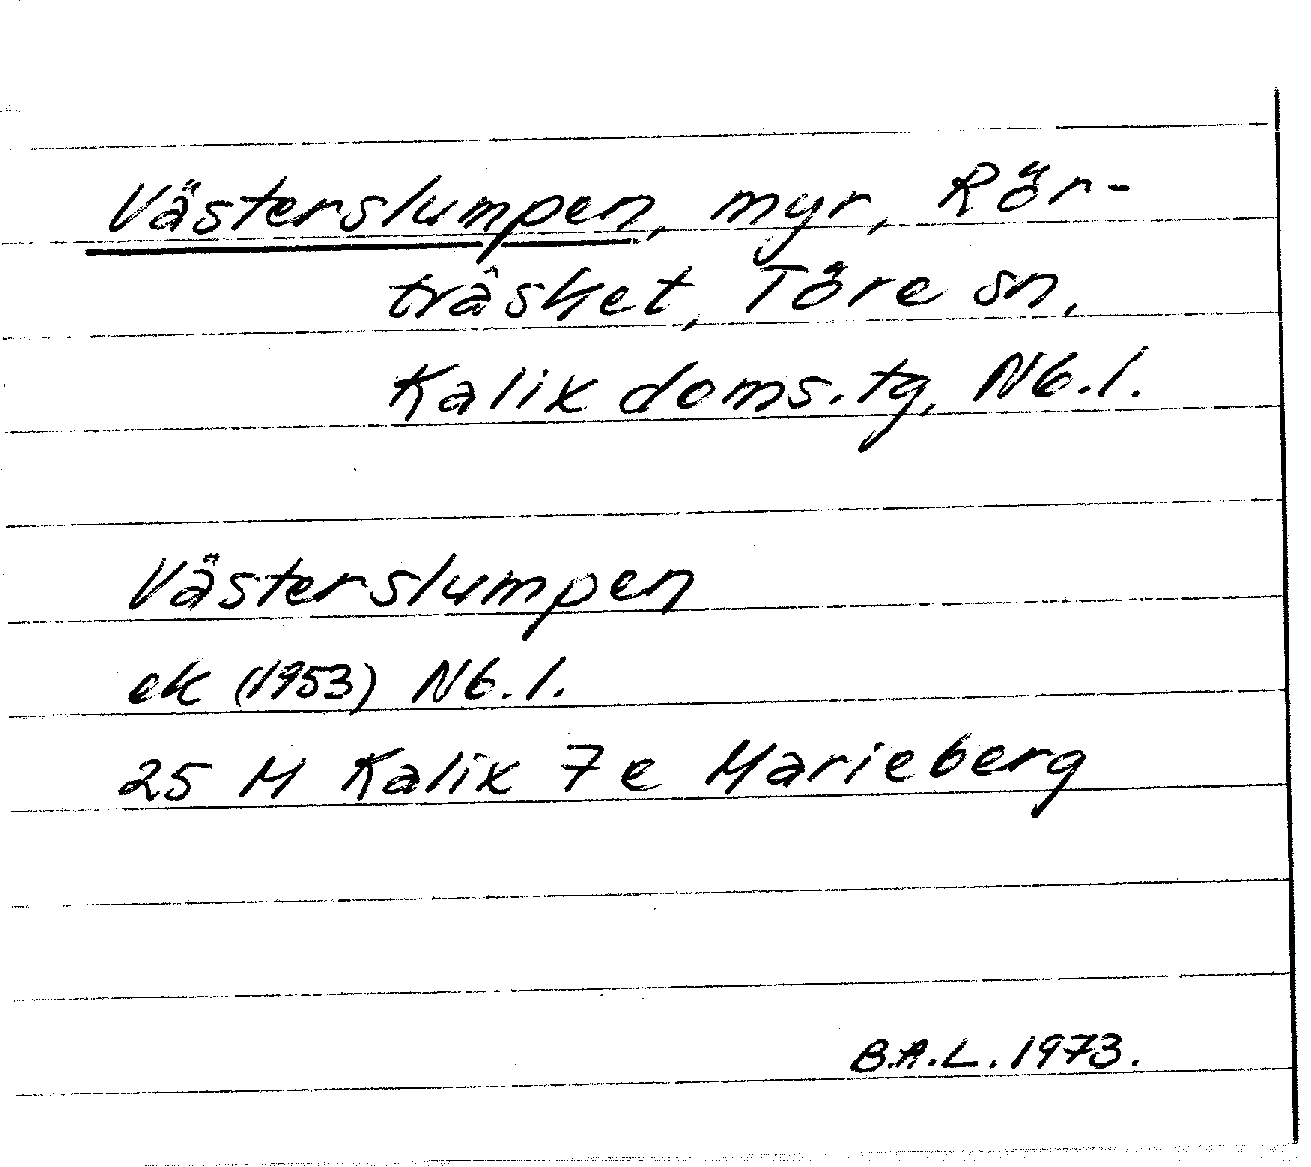 Västerslumpen, myr, Rör-
träsket, Töre sn,
Kalix doms.tg, Nb.l.
Västerslumpen
ek (1953) Nb.l.
25 M Kalix 7 e Marieberg
B.A.L. 1973.